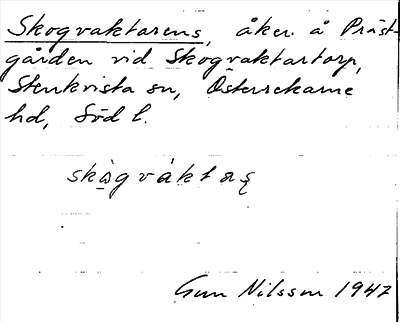 Skogvaktarens, åker å Präst-
gården vid Skogvaktartorp,
Stenkvista sn, Österrekarne
hd, Söd l.
skògváktaș
Gun Nilsson 1947